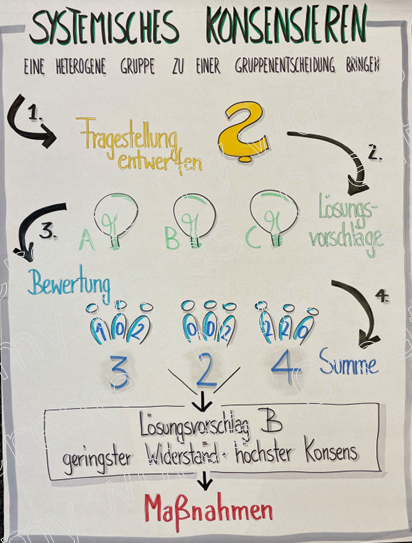 SYSTEMISCHES KONSENSIEREN
EINE HETEROGENE GRUPPE ZU EINER GRUPPENENTSCHEIDUNG BRINGEN
1.
Fragestellung
entwerfen
?
2.
A B C
Lösungs-
vorschläge
3.
Bewertung
4.
1 0 2 0 0 2 2 2 0
3 2 4 Summe
Lösungsvorschlag B
geringster Widerstand · höchster Konsens
Maßnahmen